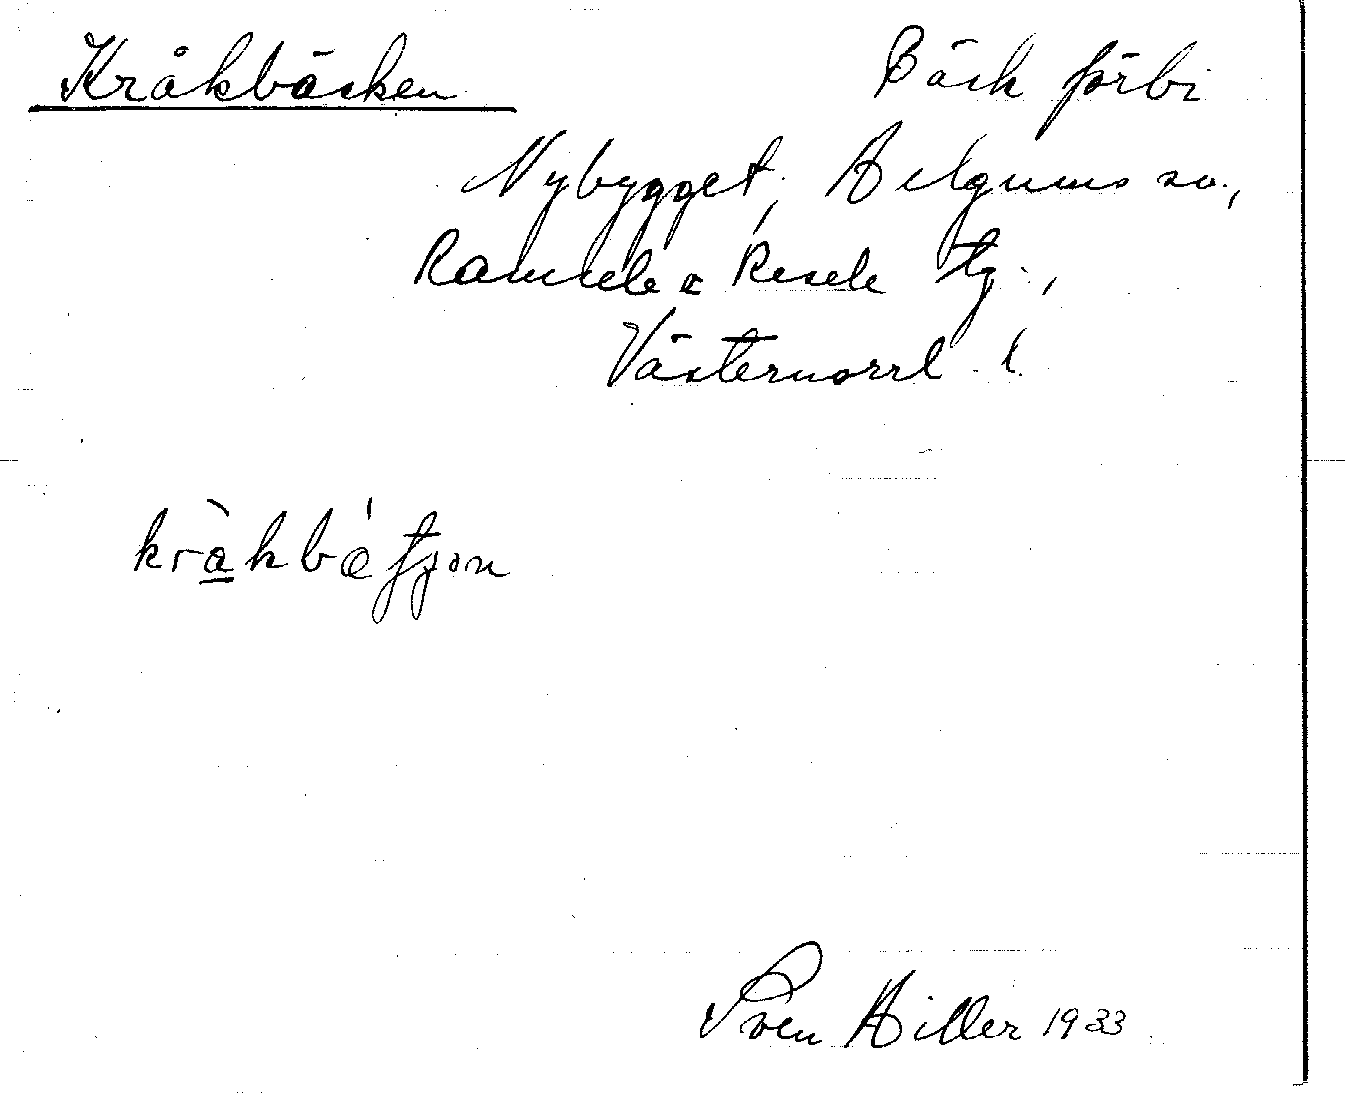 Kråkbäcken Bäck förbi
Nybygget, Helgums sn.,
Ramsele & Resele tg.,
Västernorrl. l.
Sven Hiller 1933